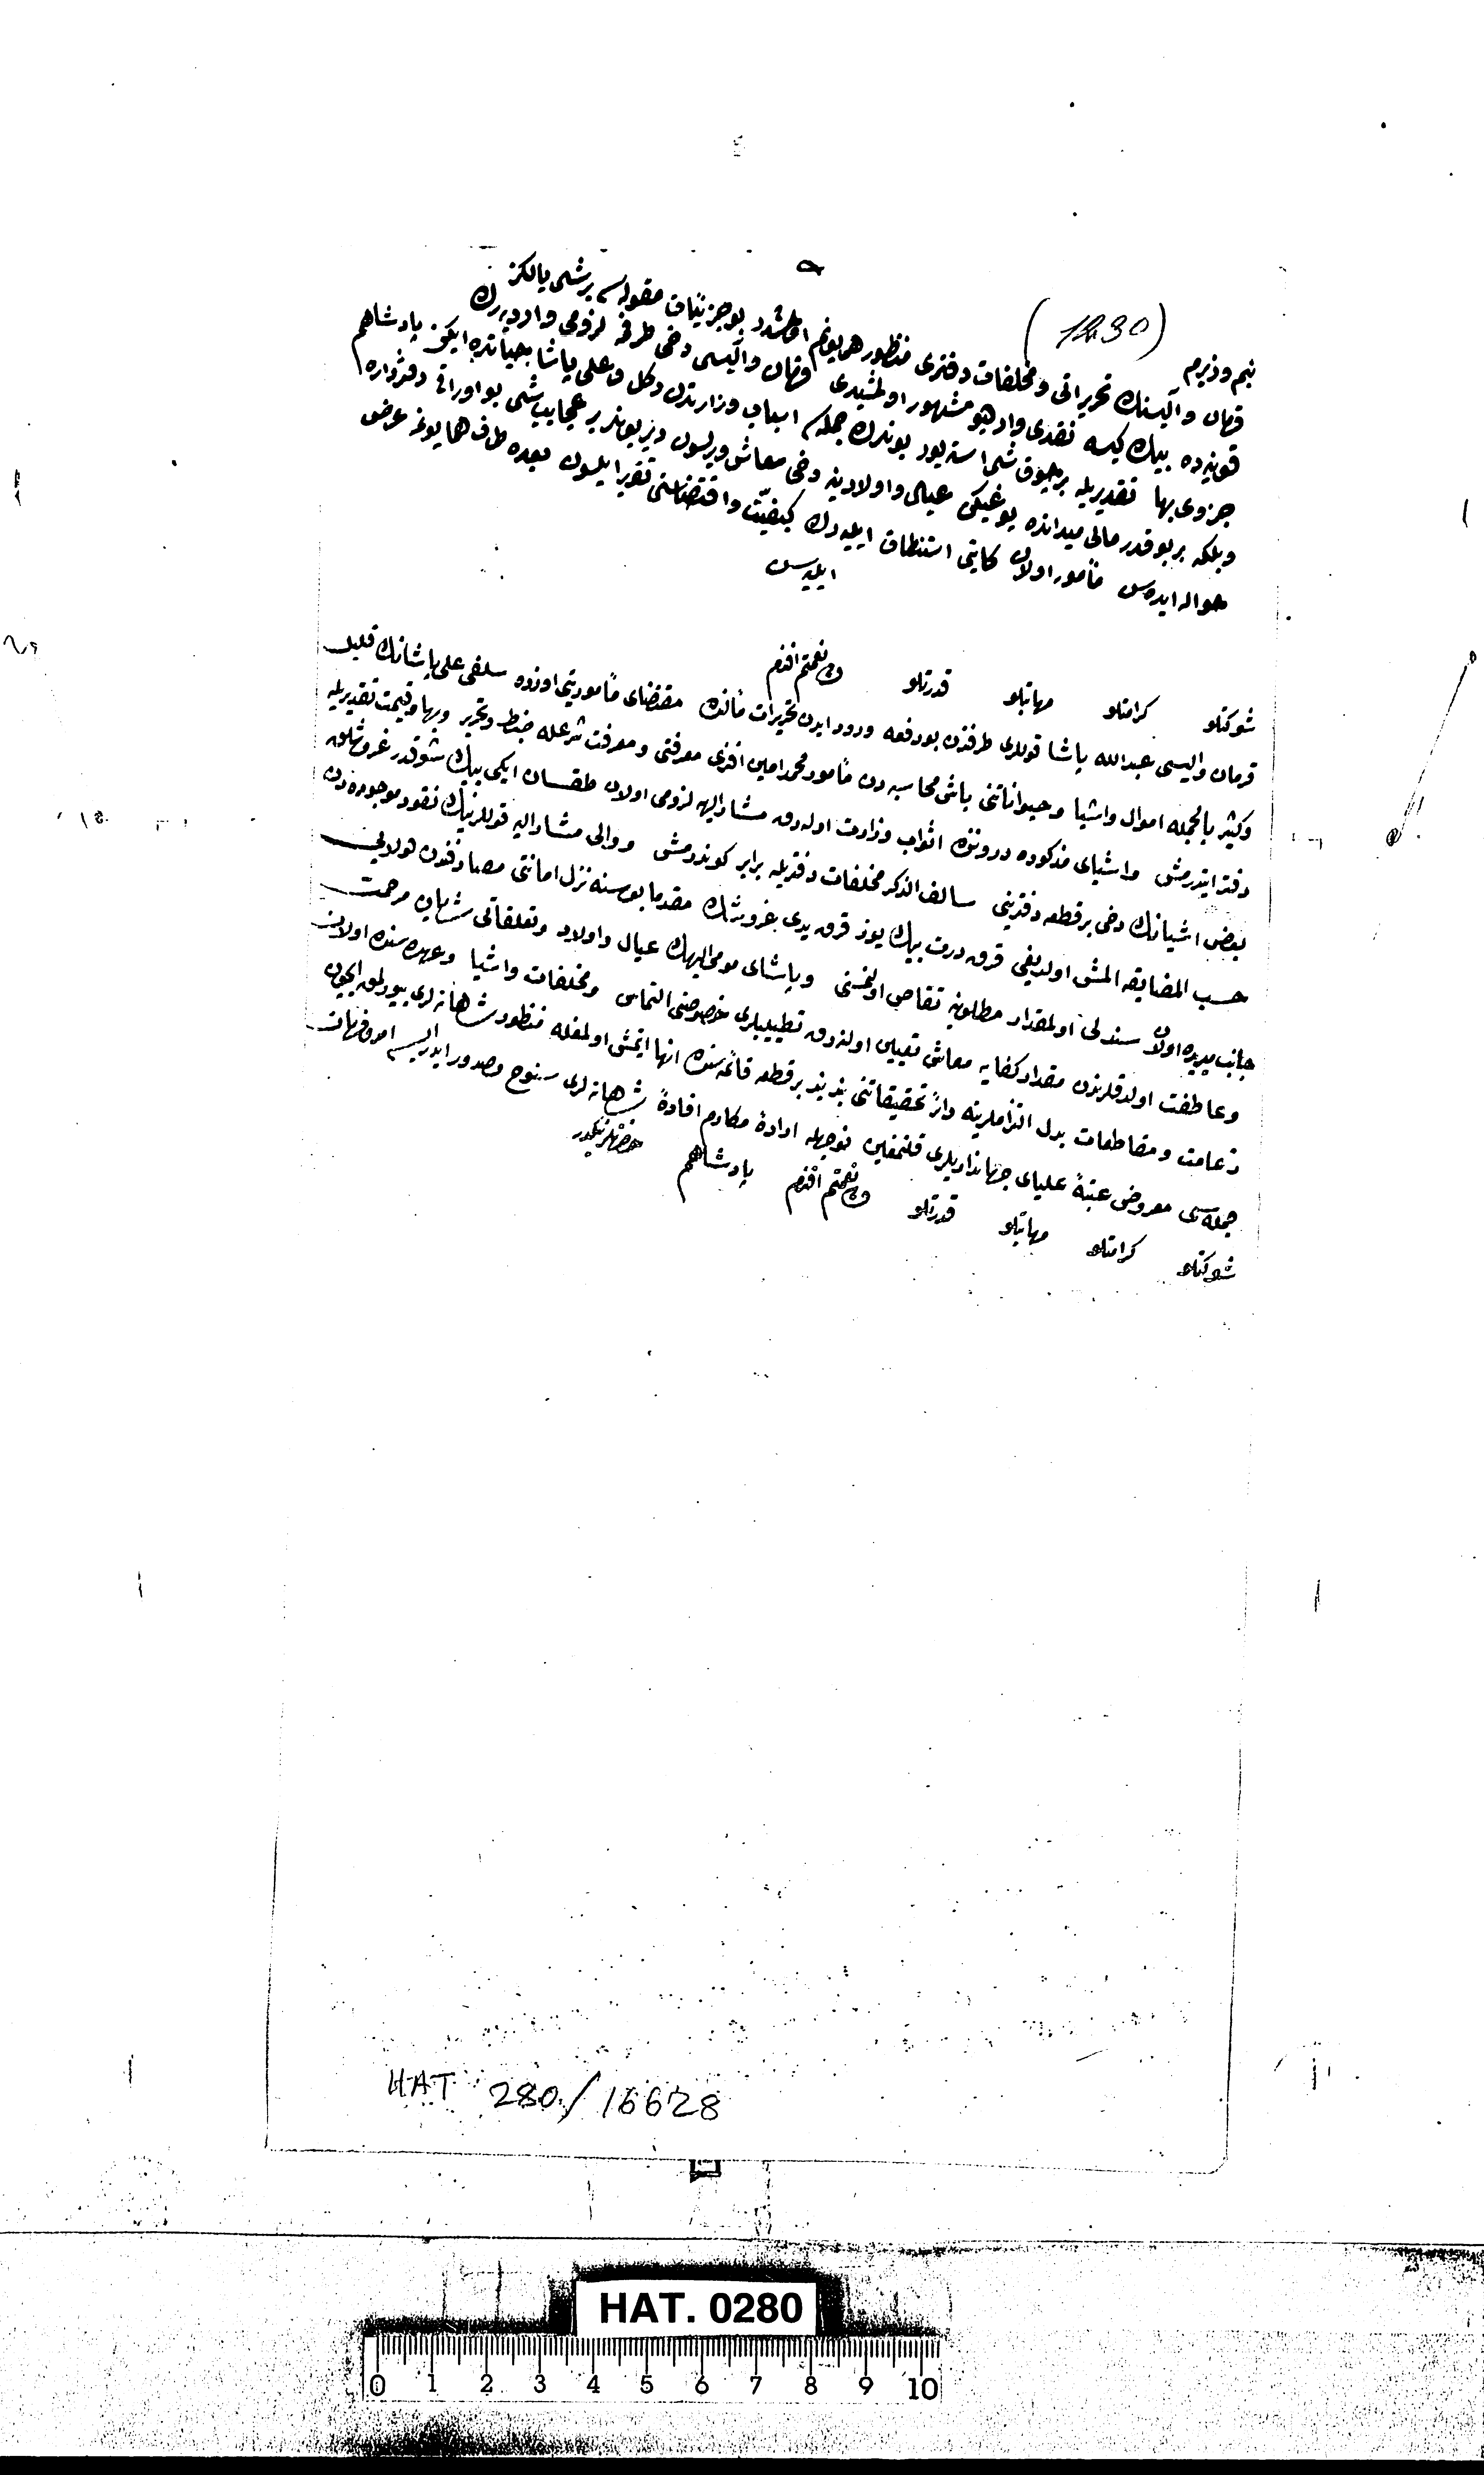 (1230)
بنم وزیرم
قرمان والیسنك تحریراتی ومخلفات دفتری منظور همایونم اولمشدر بو جزئیات مقوله سی برشی یالكز
قونیه ده بیك كیسه نقدی وار دیو مشهور اولمشیدی قرمان والیسی دخی طرفمه لزومی وار دیرك
جزوی بها تقدیریله برچوق شی استه یور بونلرك جمله سی اسباب وزارتدن دكل وعلی پاشا بحیاتده ایكن پادشاهم
وبلكه بر بو قدر مالی میدانده یوغیكن عیال واولادینه دخی معاش ویرلسون دیر بونلر بر عجایب شی بو اوراقی دفترداره
حواله ایده سن مأمور اولان كاتبی استنطاق ایلیه رك كیفیت واقتضاسنی تقریر ایلسون بعده طرف همایونمه عرض
ایلیه سن
شوكتلو كرامتلو مهابتلو قدرتلو ولی نعمتم افندم
قرمان والیسی عبدالله پاشا قوللری طرفندن بو دفعه ورود ایدن تحریرات مآلنده مقتضای مأموریتی اوزره سلفی علی پاشانك قلیل
وكثیر بالجمله اموال واشیا وحیواناتنی باش محاسبه دن مأمور محمد امین افندی معرفتی ومعرفت شرعله ضبط وتحریر وبها وقیمت تقدیریله
دفتر ایتدرمش واشیای مذكوره دروننده اثواب وزارت اوله رق مشار الیه لزومی اولان طقسان ایكی بیك شو قدر غروشلق
بعض اشیانك دخی بر قطعه دفترینی سالف الذكر مخلفات دفتریله برابر كوندرمش ووالی مشار الیه قوللرینك نقود موجوده دن
حسب المضایقه المش اولدیغی قرق درت بیك یوز قرق یدی بغروشك مقدما بوسنه نزل امانتی مصارفندن طولایی
جانب میریده اولان سندلی اولمقدار مطلوبنه تقاص اولنمسنی وپاشای مومی الیهك عیال واولاد وتعلقاتی شایان مرحمت
وعاطفت اولدقلرندن مقدار كفایه معاش تعیین اولنه رق تطییبلری خصوصنی التماس ومخلفات واشیا وعهده سنده اولان
زعامت ومقاطعات بدل التزاملرینه دائر تحقیقاتنی بند بند بر قطعه قائمه سنده انها ایتمش اولمغله منظور شاهانه لری بیورلمق ایچون
جمله سی معروض عتبهٔ علیای جهاندارلری قلنمغین نوجهله ارادهٔ مكارم افادهٔ شاهانه لری سنوح وصدور ایدر ایسه امر وفرمان
شوكتلو كرامتلو مهابتلو قدرتلو ولی نعمتم افندم پادشاهم حضرتلرینكدر
HAT 280/16628
HAT. 0280
0 1 2 3 4 5 6 7 8 9 10